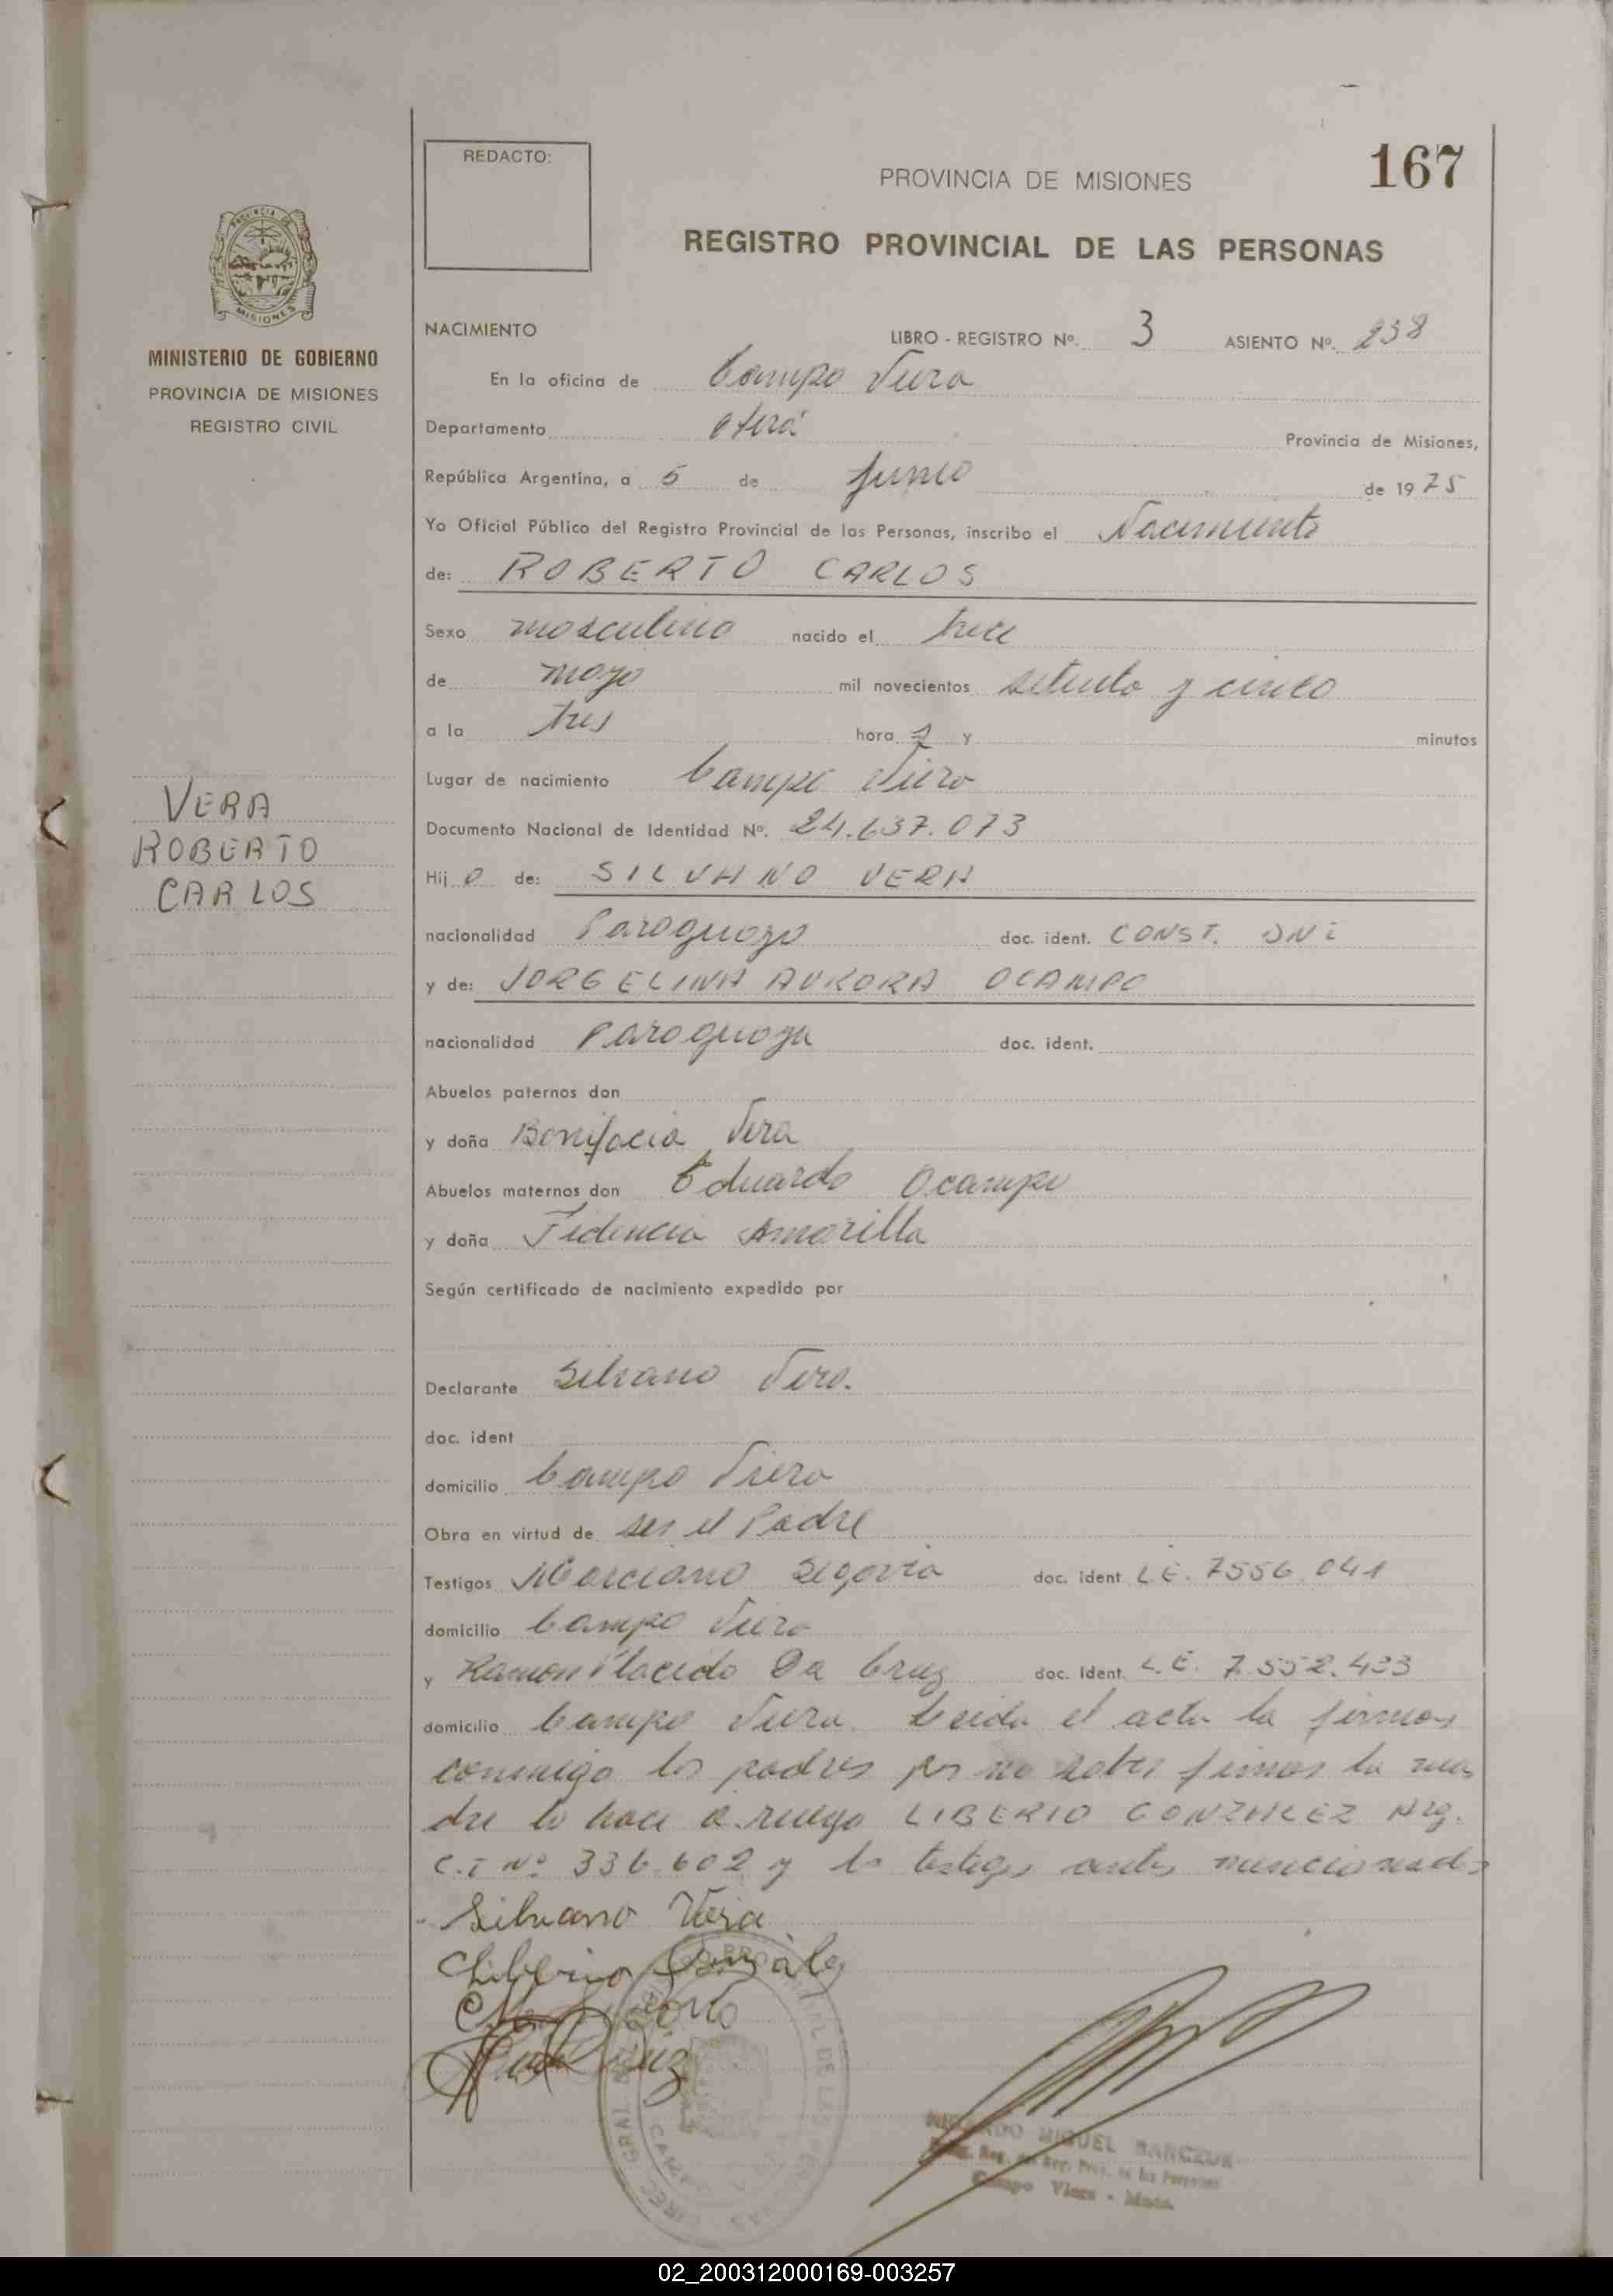 REDACTO:
167
PROVINCIA DE MISIONES
REGISTRO PROVINCIAL DE LAS PERSONAS
PROVINCIA DE
MISIONES
MINISTERIO DE GOBIERNO
PROVINCIA DE MISIONES
REGISTRO CIVIL
VERA
ROBERTO
CARLOS
NACIMIENTO LIBRO - REGISTRO Nº. 3 ASIENTO Nº. 238
En la oficina de Campo Viera
Departamento Oberá Provincia de Misiones,
República Argentina, a 5 de junio de 1975
Yo Oficial Público del Registro Provincial de las Personas, inscribo el Nacimiento
de: ROBERTO CARLOS
Sexo masculino nacido el trece
de mayo mil novecientos setenta y cinco
a la tres hora s y minutos
Lugar de nacimiento Campo Viera
Documento Nacional de Identidad Nº. 24.637.073
Hij o de: SILVANO VERA
nacionalidad Paraguayo doc. ident. CONST. DNI
y de: JORGELINA AURORA OCAMPO
nacionalidad Paraguaya doc. ident.
Abuelos paternos don
y doña Bonifacia Vera
Abuelos maternos don Eduardo Ocampo
y doña Fidencia Amarilla
Según certificado de nacimiento expedido por
Declarante Silvano Vera.
doc. ident
domicilio Campo Viera
Obra en virtud de ser el Padre
Testigos Marciano Segovia doc. ident L.E. 7556.041
domicilio Campo Viera
y Ramon Placido Da Cruz doc. ident. L.E. 7.552.433
domicilio Campo Viera. Leida el acta la firman
conmigo los padres por no saber firmar la ma
dre lo hace a ruego LIBERIO GONZALEZ Arg.
C.I Nº 336.602 y los testigos antes mencionados
Silvano Vera
Liberio González
CAMPO
MIGUEL
Campo Viera - Mnes.
02_200312000169-003257